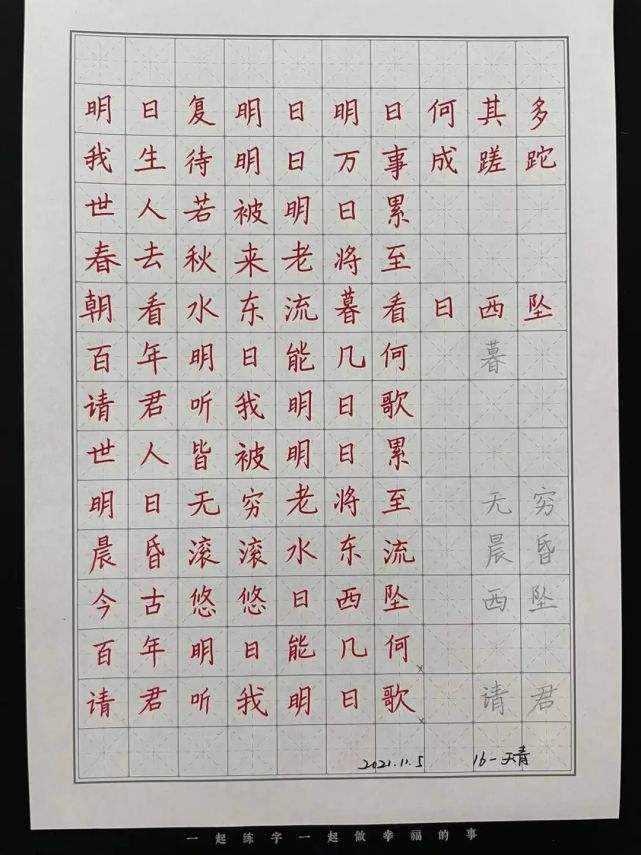 明日复明日明日何其多
我生待明日万事成蹉跎
世人若被明日累
春去秋来老将至
朝看水东流暮看日西坠
百年明日能几何 暮
请君听我明日歌
世人皆被明日累
明日无穷老将至 无穷
晨昏滚滚水东流 晨昏
今古悠悠日西坠 西坠
百年明日能几何
请君听我明日歌 请君
2021.11.5 16-天青
一起练字一起做幸福的事